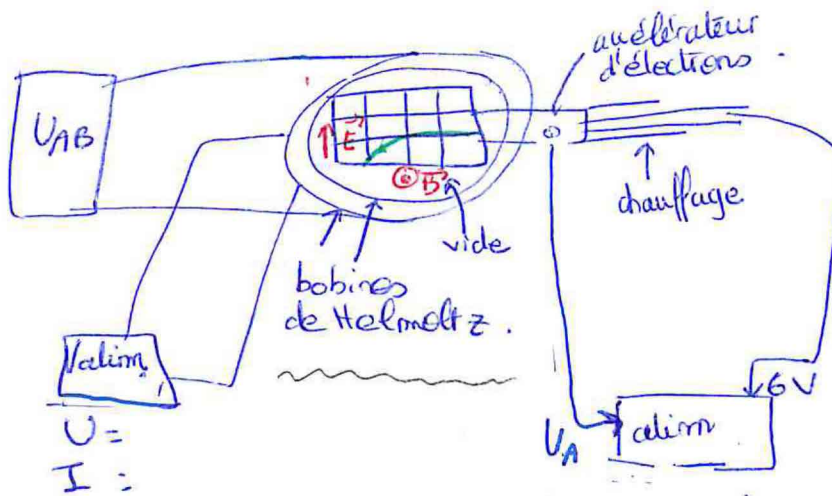 accélérateur
d'élections.
U_AB
E
B
chauffage
vide
bobines
de Helmoltz.
Valim
U =
I :
6V
U_A
alim